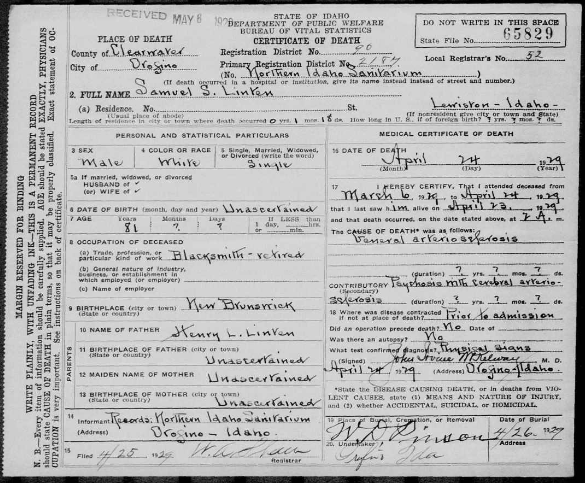 RECEIVED MAY 8 1929
STATE OF IDAHO
DEPARTMENT OF PUBLIC WELFARE
BUREAU OF VITAL STATISTICS
CERTIFICATE OF DEATH
DO NOT WRITE IN THIS SPACE
State File No. 65829
PLACE OF DEATH
County of Clearwater
City of Orofino
Registration District No. 90
Primary Registration District No. 2187
Local Registrar's No. 52
(No. Northern Idaho Sanitarium)
(If death occurred in a hospital or institution, give its name instead of street and number.)
2. FULL NAME Samuel S. Linten
(a) Residence. No. St. Lewiston - Idaho -
(Usual place of abode) (If nonresident give city or town and State)
Length of residence in city or town where death occurred 0 yrs. 1 mos. 18 ds. How long in U. S., if of foreign birth? ? yrs. ? mos. ? ds.
PERSONAL AND STATISTICAL PARTICULARS
3 SEX Male
4 COLOR OR RACE White
5 Single, Married, Widowed, or Divorced (write the word) Single
5a If married, widowed, or divorced
HUSBAND of
or WIFE of
6 DATE OF BIRTH (month, day and year) Unascertained
7 AGE Years 81 Months ? Days ? If LESS than 1 day, hrs. or min.
8 OCCUPATION OF DECEASED
(a) Trade, profession, or particular kind of work Blacksmith - retired
(b) General nature of industry, business, or establishment in which employed (or employer)
(c) Name of employer
9 BIRTHPLACE (city or town) New Brunswick
(State or country)
PARENTS
10 NAME OF FATHER Henry L. Linten
11 BIRTHPLACE OF FATHER (city or town)
(State or country) Unascertained
12 MAIDEN NAME OF MOTHER Unascertained
13 BIRTHPLACE OF MOTHER (city or town)
(State or country) Unascertained
14 Informant Records: Northern Idaho Sanitarium
(Address) Orofino - Idaho.
15 Filed 4/25 1929
Registrar
MEDICAL CERTIFICATE OF DEATH
16 DATE OF DEATH
April 24 1929
(Month) (Day) (Year)
17 I HEREBY CERTIFY, That I attended deceased from
March 6 1929 to April 24 1929
that I last saw him alive on April 23. 1929
and that death occurred, on the date stated above, at 2 A m.
The CAUSE OF DEATH* was as follows:
General arteriosclerosis
(duration) ? yrs. ? mos. ? ds.
CONTRIBUTORY Psychosis with cerebral arterio-
(Secondary)
sclerosis (duration) ? yrs. ? mos. ? ds.
18 Where was disease contracted
if not at place of death? Prior to admission
Did an operation precede death? No Date of
Was there an autopsy? No
What test confirmed diagnosis? Physical signs
(Signed) M. D.
April 24 1929 (Address) Orofino - Idaho.
*State the DISEASE CAUSING DEATH, or in deaths from VIOLENT CAUSES, state (1) MEANS AND NATURE OF INJURY, and (2) whether ACCIDENTAL, SUICIDAL, or HOMICIDAL.
19 Place of Burial, Cremation, or Removal Date of Burial
4/26 1929
20 Undertaker
MARGIN RESERVED FOR BINDING
WRITE PLAINLY, WITH UNFADING INK—THIS IS A PERMANENT RECORD
N. B.—Every item of information should be carefully supplied. AGE should be stated EXACTLY. PHYSICIANS
should state CAUSE OF DEATH in plain terms, so that it may be properly classified. Exact statement of OC-
CUPATION is very important. See instructions on back of certificate.